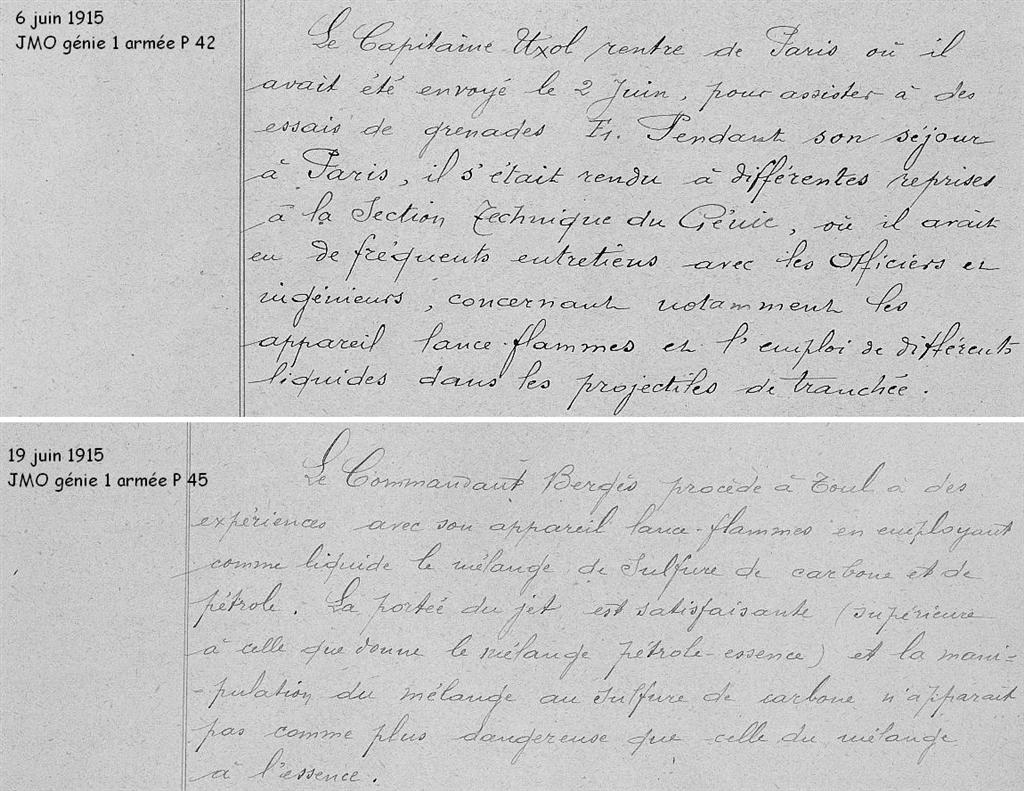 6 juin 1915
JMO génie 1 armée P 42
Le Capitaine Uxol rentre de Paris où il
avait été envoyé le 2 Juin, pour assister à des
essais de grenades F1. Pendant son séjour
à Paris, il s'était rendu à différentes reprises
à la Section Technique du Génie, où il avait
eu de fréquents entretiens avec les Officiers et
ingénieurs, concernant notamment les
appareil lance-flammes et l'emploi de différents
liquides dans les projectiles de tranchée.
19 juin 1915
JMO génie 1 armée P 45
Le Commandant Bergès procède à Toul à des
expériences avec son appareil lance-flammes en employant
comme liquide le mélange de Sulfure de carbone et de
pétrole. La portée du jet est satisfaisante (supérieure
à celle que donne le mélange pétrole-essence) et la mani-
-pulation du mélange au sulfure de carbone n'apparaît
pas comme plus dangereuse que celle du mélange
à l'essence.